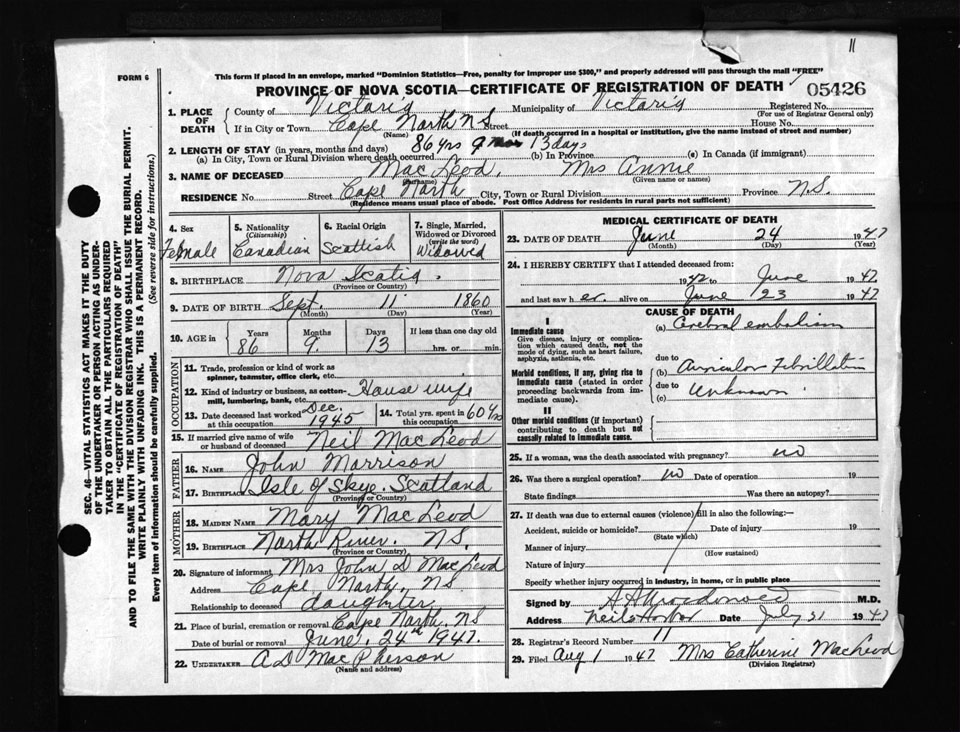 11
FORM 6
This form if placed in an envelope, marked "Dominion Statistics—Free, penalty for improper use $300," and properly addressed will pass through the mail "FREE"
PROVINCE OF NOVA SCOTIA—CERTIFICATE OF REGISTRATION OF DEATH
05426
1. PLACE OF DEATH
County of Victoria Municipality of Victoria Registered No.
(For use of Registrar General only)
If in City or Town Cape North NS Street House No.
(Name) (If death occurred in a hospital or institution, give the name instead of street and number)
2. LENGTH OF STAY (in years, months and days) 86 yrs 9 mos 13 days
(a) In City, Town or Rural Division where death occurred (b) In Province (c) In Canada (if immigrant)
3. NAME OF DECEASED Mac Leod, Mrs Annie
(Surname) (Given name or names)
RESIDENCE No Street Cape North City, Town or Rural Division Province N.S.
(Residence means usual place of abode. Post Office Address for residents in rural parts not sufficient)
4. Sex
Female
5. Nationality
(Citizenship)
Canadian
6. Racial Origin
Scottish
7. Single, Married, Widowed or Divorced
(write the word)
Widowed
8. BIRTHPLACE Nova Scotia.
(Province or Country)
9. DATE OF BIRTH Sept. 11 1860
(Month) (Day) (Year)
10. AGE in
Years Months Days If less than one day old
86 9. 13 hrs. or min.
OCCUPATION
11. Trade, profession or kind of work as spinner, teamster, office clerk, etc.
12. Kind of industry or business, as cotton-mill, lumbering, bank, etc. House wife
13. Date deceased last worked at this occupation Dec. 1945
14. Total yrs. spent in 60 yrs
15. If married give name of wife or husband of deceased Neil Mac Leod
FATHER
16. NAME John Morrison
17. BIRTHPLACE Isle of Skye. Scotland
(Province or Country)
MOTHER
18. MAIDEN NAME Mary Mac Leod
19. BIRTHPLACE North River. N.S.
(Province or Country)
20. Signature of informant Mrs John D MacLeod
Address Cape North, NS
Relationship to deceased daughter
21. Place of burial, cremation or removal Cape North, NS
Date of burial or removal June. 24th 1947.
22. UNDERTAKER A D MacPherson
(Name and address)
MEDICAL CERTIFICATE OF DEATH
23. DATE OF DEATH June 24 1947
(Month) (Day) (Year)
24. I HEREBY CERTIFY that I attended deceased from:
1942 to June 1947
and last saw her alive on June 23 1947
CAUSE OF DEATH
I
Immediate cause
Give disease, injury or complication which caused death, not the mode of dying, such as heart failure, asphyxia, asthenia, etc.
(a) Cerebral embolism
due to
Morbid conditions, if any, giving rise to immediate cause (stated in order proceeding backwards from immediate cause).
(b) Auricular Fibrillation
due to
(c) Unknown
II
Other morbid conditions (if important) contributing to death but not causally related to immediate cause.
25. If a woman, was the death associated with pregnancy? no
26. Was there a surgical operation? no Date of operation 19
State findings Was there an autopsy?
27. If death was due to external causes (violence) fill in also the following:—
Accident, suicide or homicide? Date of injury 19
(State which)
Manner of injury
(How sustained)
Nature of injury
Specify whether injury occurred in industry, in home, or in public place
Signed by M.D.
Address Neils Harbor Date July 31 1947
28. Registrar's Record Number 11
29. Filed Aug 1 1947 Mrs Catherine MacLeod
(Division Registrar)
SEC. 46—VITAL STATISTICS ACT MAKES IT THE DUTY
OF THE UNDERTAKER OR PERSON ACTING AS UNDER-
TAKER TO OBTAIN ALL THE PARTICULARS REQUIRED
IN THE "CERTIFICATE OF REGISTRATION OF DEATH"
AND TO FILE THE SAME WITH THE DIVISION REGISTRAR WHO SHALL ISSUE THE BURIAL PERMIT.
WRITE PLAINLY WITH UNFADING INK. THIS IS A PERMANENT RECORD.
Every item of information should be carefully supplied. (See reverse side for instructions.)